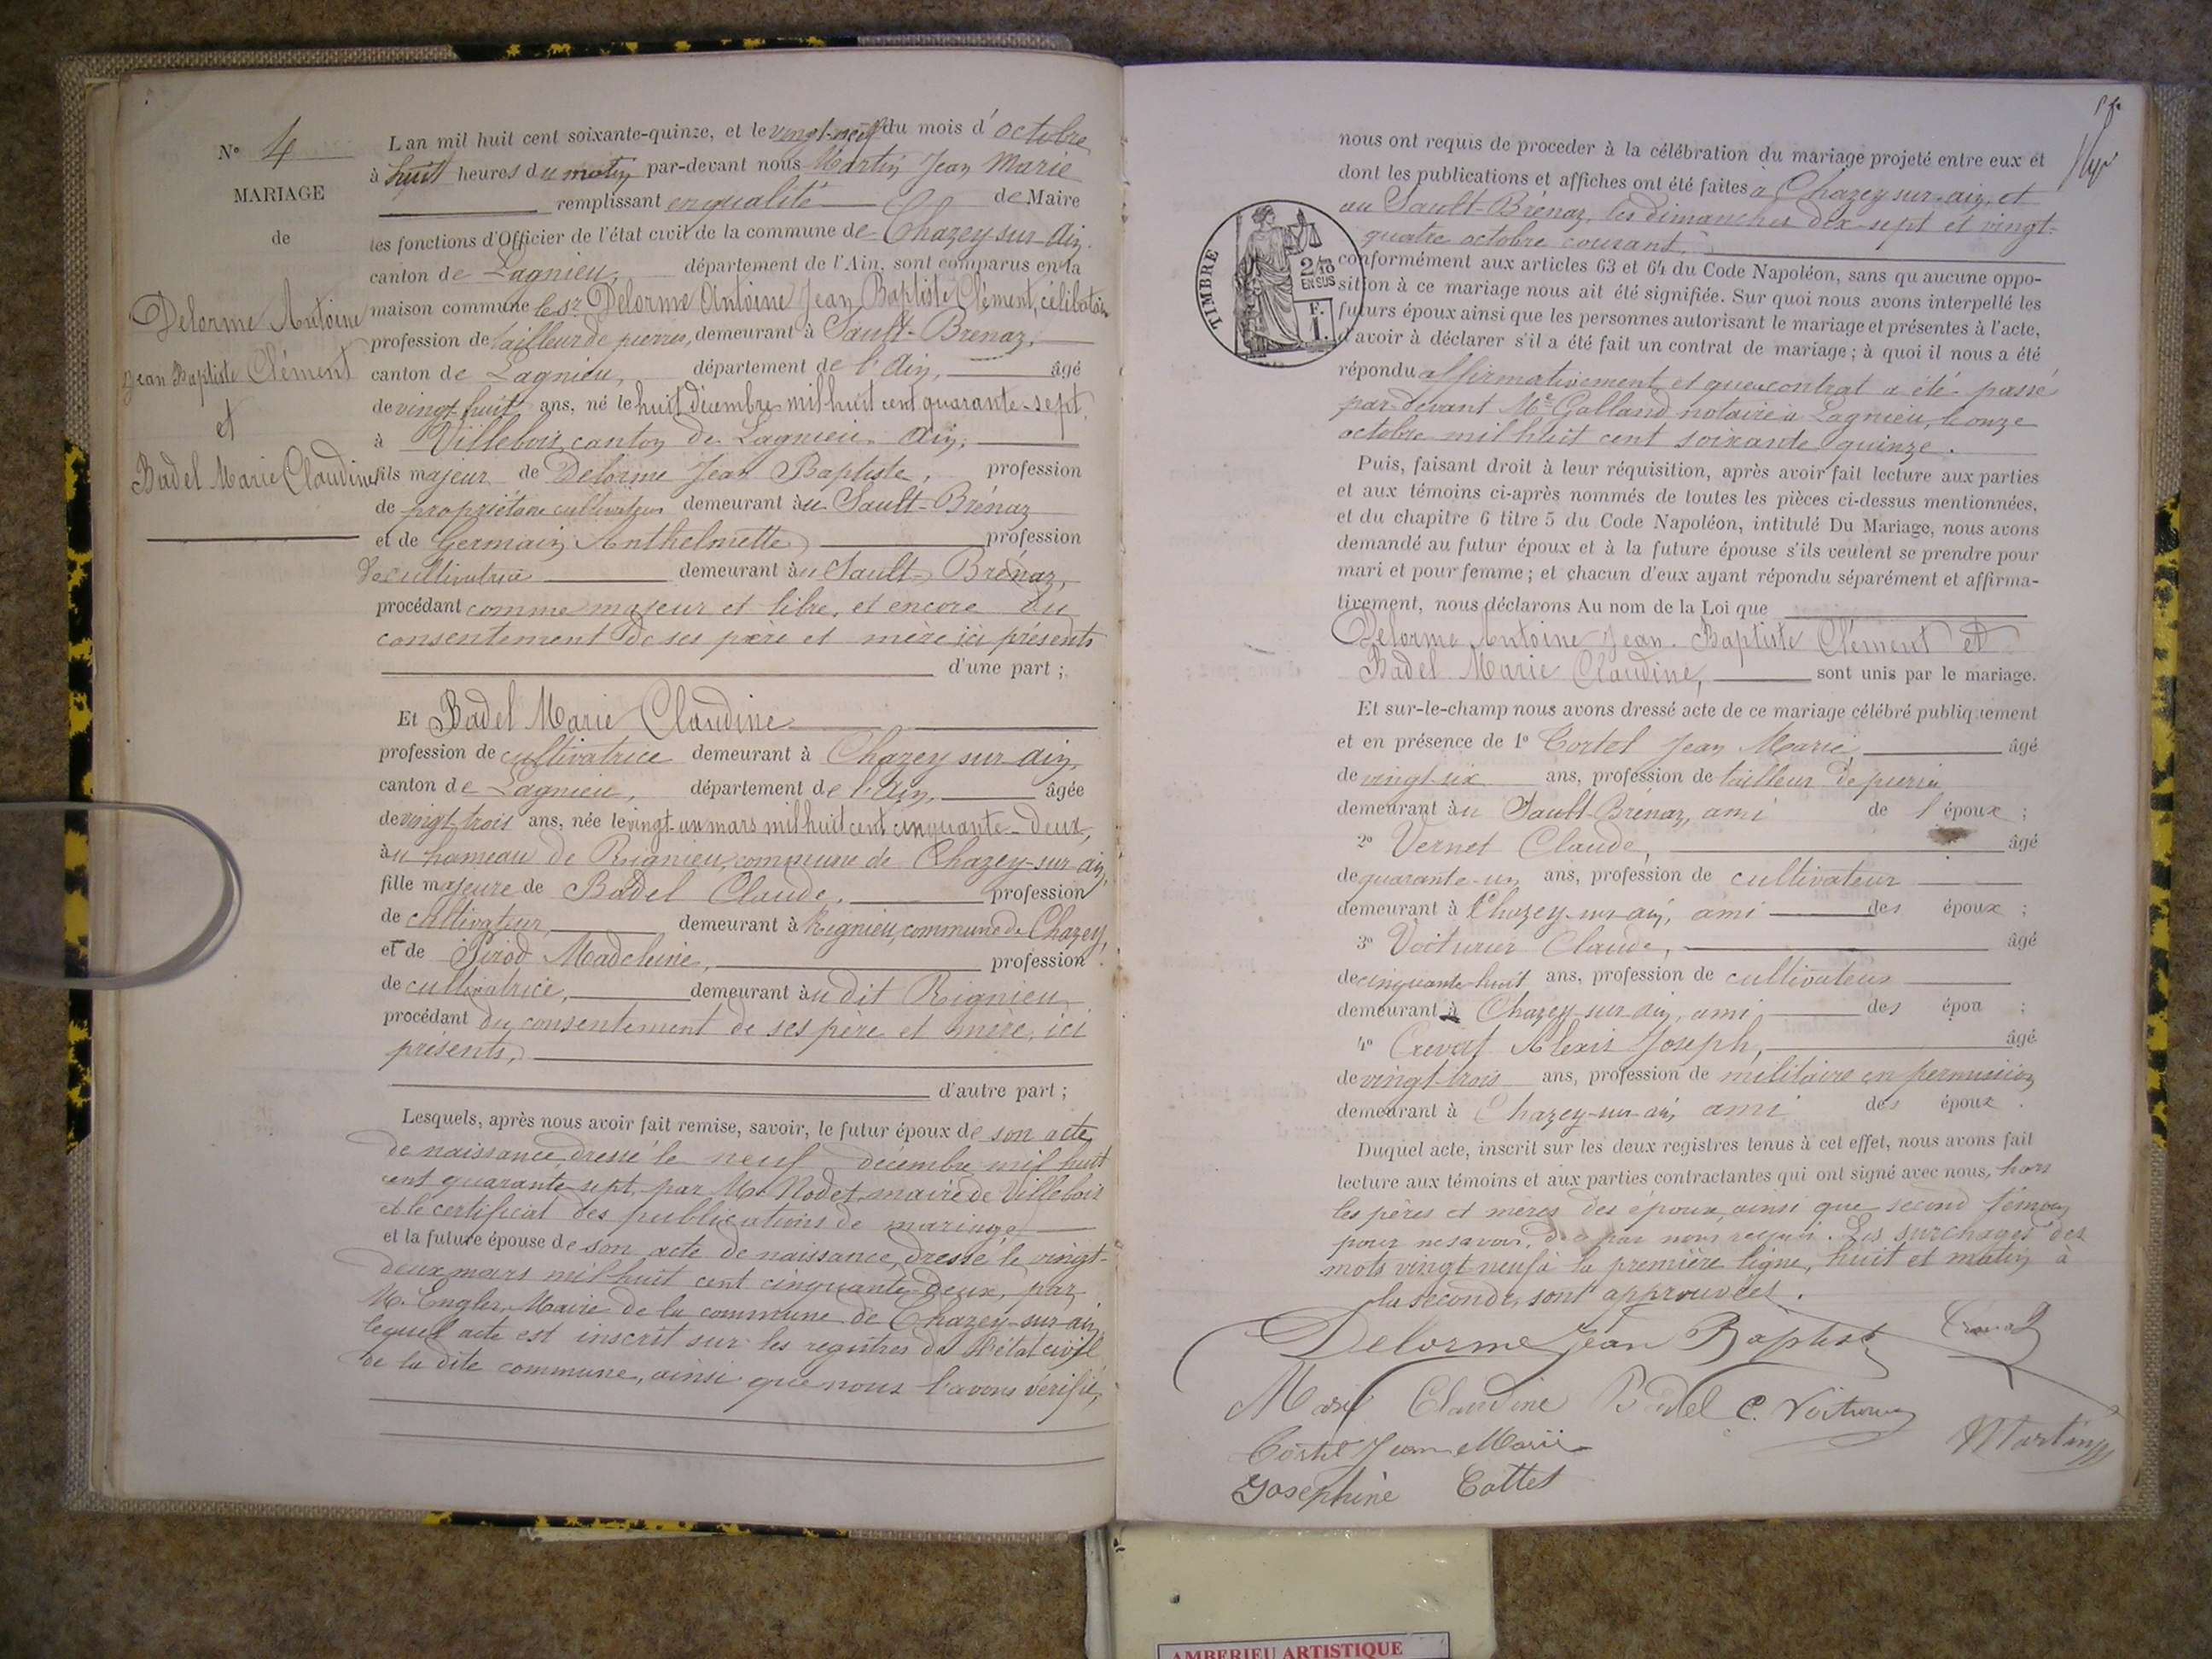 N° 4
MARIAGE
de
Delorme Antoine
Jean Baptiste Clément
et
Badel Marie Claudine
L'an mil huit cent soixante-quinze, et le vingt-neuf du mois d'octobre
à huit heures du matin par-devant nous Martin Jean Marie
remplissant en qualité de Maire
les fonctions d'Officier de l'état civil de la commune de Chazey-sur-Ain.
canton de Lagnieu, département de l'Ain, sont comparus en la
maison commune le sr Delorme Antoine Jean Baptiste Clément, célibataire
profession de tailleur de pierres, demeurant à Sault-Brenaz,
canton de Lagnieu, département de l'Ain, âgé
de vingt-huit ans, né le huit décembre mil huit cent quarante-sept,
à Villebois canton de Lagnieu Ain,
fils majeur de Delorme Jean Baptiste, profession
de propriétaire cultivateur demeurant au Sault-Brénaz
et de Germain Anthelmette profession
de cultivatrice demeurant au Sault-Brénaz,
procédant comme majeur et libre, et encore du
consentement de ses père et mère ici présents
d'une part ;
Et Badel Marie Claudine
profession de cultivatrice demeurant à Chazey sur Ain,
canton de Lagnieu, département de l'Ain, âgée
de vingt-trois ans, née le vingt-un mars mil huit cent cinquante-deux,
au hameau de Rignieu, commune de Chazey-sur-ain,
fille majeure de Badel Claude, profession
de cultivateur, demeurant à Rignieu, commune de Chazey,
et de Pirod Madeleine, profession
de cultivatrice, demeurant au dit Rignieu
procédant du consentement de ses père et mère, ici
présents,
d'autre part ;
Lesquels, après nous avoir fait remise, savoir, le futur époux de son acte
de naissance, dressé le neuf décembre mil huit
cent quarante-sept, par Mr Nodet, maire de Villebois
et le certificat des publications de mariage
et la future épouse de son acte de naissance, dressé le vingt-
deux mars mil huit cent cinquante-deux, par
M. Engler, Maire de la commune de Chazey-sur-ain
lequel acte est inscrit sur les registres de l'état civil
de la dite commune, ainsi que nous l'avons vérifié,
nous ont requis de proceder à la célébration du mariage projeté entre eux et
dont les publications et affiches ont été faites à Chazey sur-ain, et
au Sault-Brénaz, les dimanches dix-sept et vingt-
quatre octobre courant,
TIMBRE
2/10
EN SUS
F.
1.
conformément aux articles 63 et 64 du Code Napoléon, sans qu'aucune oppo-
sition à ce mariage nous ait été signifiée. Sur quoi nous avons interpellé les
futurs époux ainsi que les personnes autorisant le mariage et présentes à l'acte,
d'avoir à déclarer s'il a été fait un contrat de mariage ; à quoi il nous a été
répondu affirmativement et que ce contrat a été passé
par-devant Me Galland notaire à Lagnieu, le onze
octobre mil huit cent soixante quinze.
Puis, faisant droit à leur réquisition, après avoir fait lecture aux parties
et aux témoins ci-après nommés de toutes les pièces ci-dessus mentionnées,
et du chapitre 6 titre 5 du Code Napoléon, intitulé Du Mariage, nous avons
demandé au futur époux et à la future épouse s'ils veulent se prendre pour
mari et pour femme ; et chacun d'eux ayant répondu séparément et affirma-
tivement, nous déclarons Au nom de la Loi que
Delorme Antoine Jean-Baptiste Clément et
Badel Marie Claudine, sont unis par le mariage.
Et sur-le-champ nous avons dressé acte de ce mariage célébré publiquement
et en présence de 1° Cortel Jean Marie, âgé
de vingt-six ans, profession de tailleur de pierre
demeurant au Sault-Brénaz, ami de l'époux ;
2° Vernet Claude, âgé
de quarante-un ans, profession de cultivateur
demeurant à Chazey-sur-ain, ami des époux ;
3° Voiturier Claude, âgé
de cinquante-huit ans, profession de cultivateur
demeurant à Chazey-sur-ain, ami des épou ;
4° Crevat Alexis Joseph, âgé
de vingt-trois ans, profession de militaire en permission
demeurant à Chazey-sur-ain ami des époux.
Duquel acte, inscrit sur les deux registres tenus à cet effet, nous avons fait
lecture aux témoins et aux parties contractantes qui ont signé avec nous, hors
les pères et mères des époux, ainsi que second témoin
pour ne savoir, de par nous requis. Les surcharges des
mots vingt-neuf à la première ligne, huit et matin à
la seconde, sont approuvées.
Delorme Jean Baptiste Crevat
Marie Claudine Badel C. Voiturier
Cortel Jean Marie Martin
Josephine Cottet
AMBERIEU ARTISTIQUE